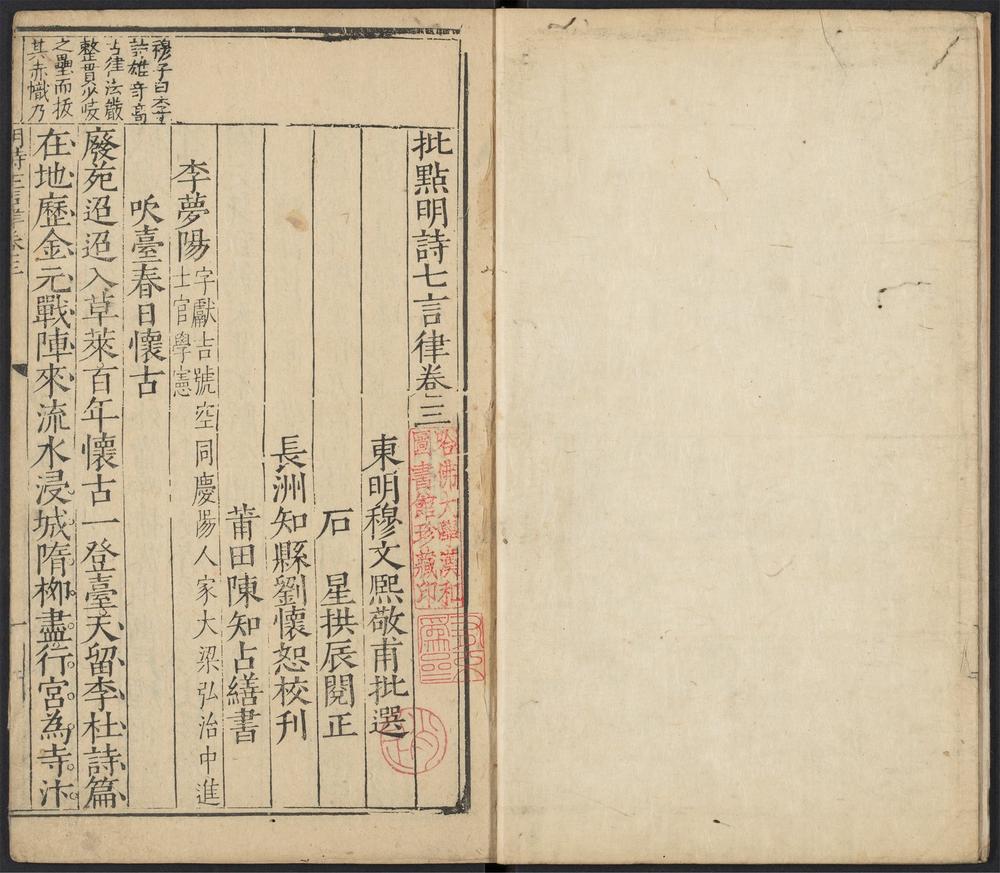 批點明詩七言律卷三
東明穆文熙敬甫批選
石 星拱辰閱正
長洲知縣劉懷恕校刊
莆田陳知占繕書
李夢陽字獻吉號空同慶陽人家大梁弘治中進
士官學憲
吹臺春日懷古
廢苑迢迢入草萊百年懷古一登臺天留李杜詩篇
在地歷金元戰陣來流水浸城隋柳盡行宮為寺汴
穆子曰李
詩雄奇高
古律法嚴
整貫少岐
之壘而拔
其赤幟乃
明詩七言律卷三
一
哈佛大學漢和
圖書館珍藏印